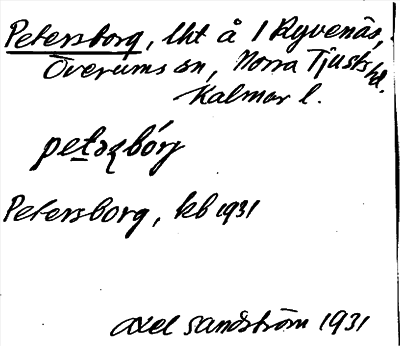 Petersborg, lht å 1 Ryvenäs,
Överums sn, Norra Tjusts hd.
Kalmar l.
petəʂbórj
Petersborg, kb 1931
Axel Sandström 1931